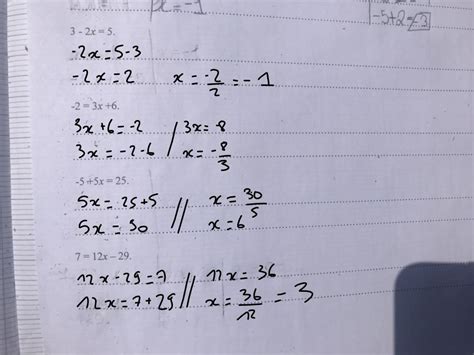 x = -1
-5+2=-3
3 - 2x = 5.
-2x = 5-3
-2x = 2 x = -2/2 = -1
-2 = 3x +6.
3x +6 = -2 / 3x = -8
3x = -2-6 / x = -8/3
-5 +5x = 25.
5x = 25+5 // x = 30/5
5x = 30 // x = 6
7 = 12x – 29.
12x - 29 = 7 // 12x = 36
12x = 7 + 29 // x = 36/12 = 3